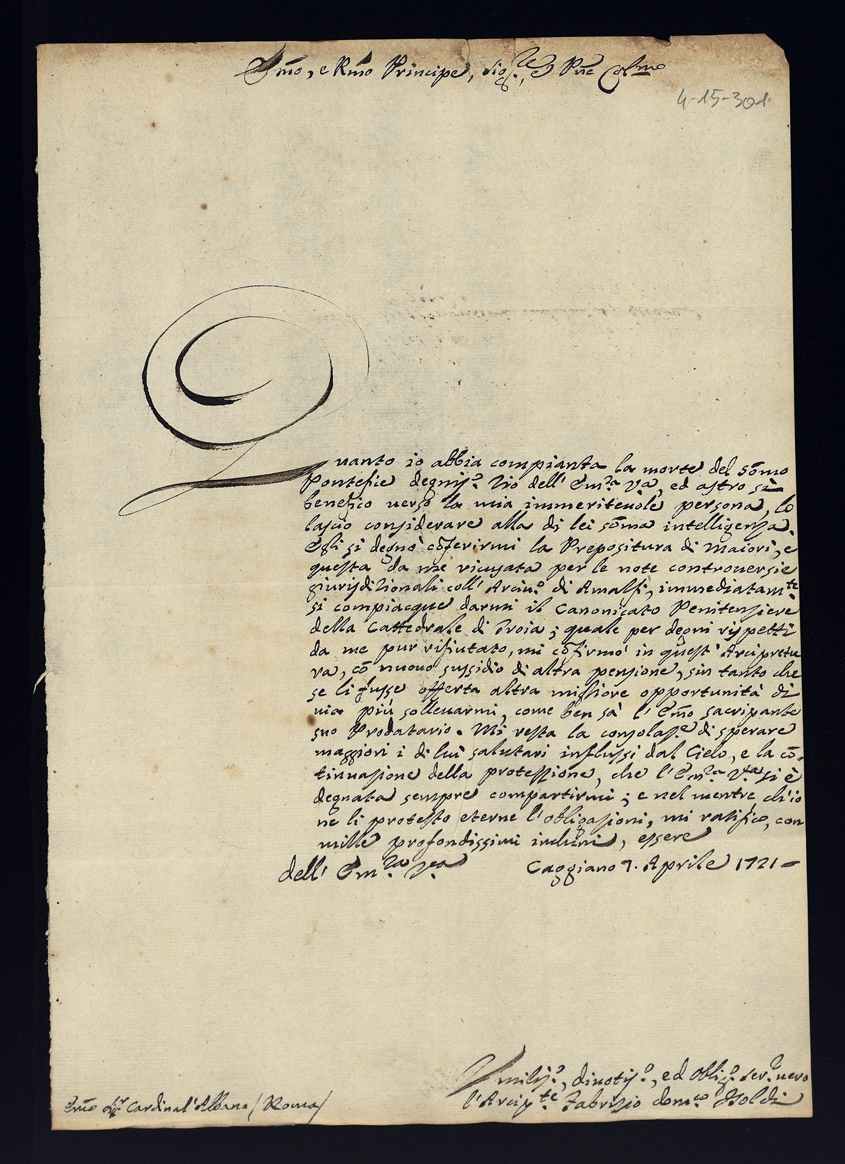 Em̃o, e Rm̃o Principe, Sig.re, e Pñe Col.mo
4-15-301
Quanto io abbia compianta la morte del sõmo
Pontefice degnis.o Zio dell' Em.za V.a, ed astro sì
benefico verso la mia immeritevole persona, lo
lascio considerare alla di lei sõma intelligenza.
Egli si degnò cõferirmi la Prepositura di Maiori, e
questa da me ricusata per le note controversie
giurisdizionali coll' Arciv.o di Amalfi, immediatam.te
si compiacque darmi il Canonicato Penitenziere
della Cattedrale di Troia; quale per degni rispetti
da me pur rifiutato, mi cõfirmò in quest' Arcipretu
ra, cõ nuovo sussidio di altra pensione, sin tanto che
se li fusse offerta altra migliore opportunità di
via più sollevarmi, come ben sà l' Em̃o Sacripante
suo Prodatario. Mi resta la consolaz.e di sperare
maggiori i di lui salutari influssi dal Cielo, e la cõ-
tinuazione della protezzione, che l' Em.za V.ra si è
degnata sempre compartirmi; e nel mentre ch'io
ne li protesto eterne l'obligazioni, mi ratifico, con
mille profondissimi inchini, essere
dell' Em.za V.ra Caggiano 7. Aprile 1721
Umilis.o, divotis.o, ed oblig.o ser.e vero
Em̃o Sig.r Cardinal' Albano / Roma / l'Arcip.te Fabrizio Dom.co Isoldi